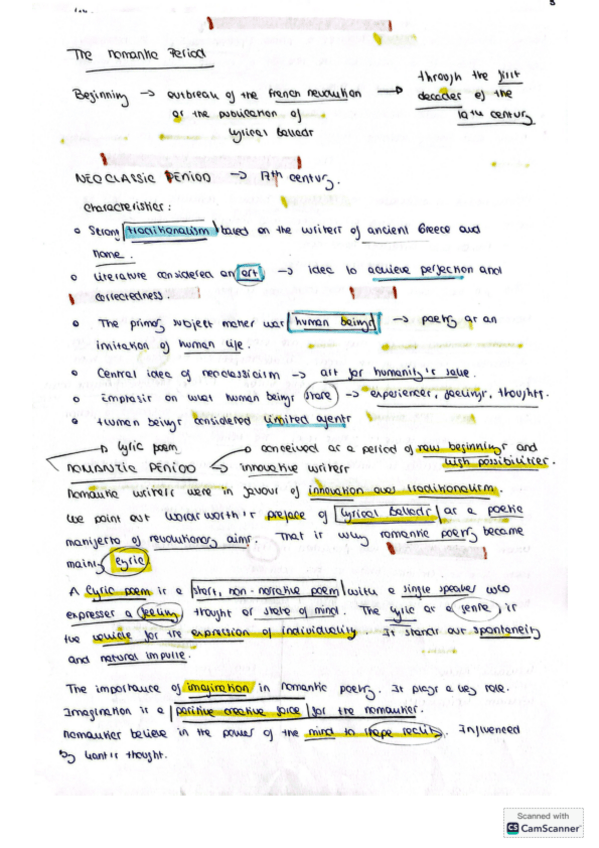 The Romantic Period
Beginning → outbreak of the french revolution → through the first
or the publication of decades of the
Lyrical Ballads 19th century
NEOCLASSIC PERIOD → 17th century.
Characteristics:
• Strong traditionalism based on the writers of ancient Greece and
Rome.
• Literature considered an art → idea to achieve perfection and
correctedness.
• The primary subject matter was human beings → poetry as an
imitation of human life.
• Central idea of neoclassicism → art for humanity's sake.
• Emphasis on what human beings share → experiences, feelings, thoughts.
• Human beings considered limited agents
→ lyric poem → conceived as a period of new beginnings and
ROMANTIC PERIOD → innovative writers high possibilities.
Romantic writers were in favour of innovation over traditionalism.
We point out Wordsworth's preface of Lyrical Ballads as a poetic
manifesto of revolutionary aims. That is why romantic poetry became
mainly lyric
A lyric poem is a short, non-narrative poem with a single speaker who
expresses a feeling thought or state of mind. The lyric as a genre is
the vehicle for the expression of individuality It stands out spontaneity
and natural impulse.
The importance of imagination in romantic poetry. It plays a key role.
Imagination is a positive creative force for the romantics.
Romantics believe in the power of the mind to shape reality. Influenced
by Kant's thought.
3
Scanned with
CS CamScanner